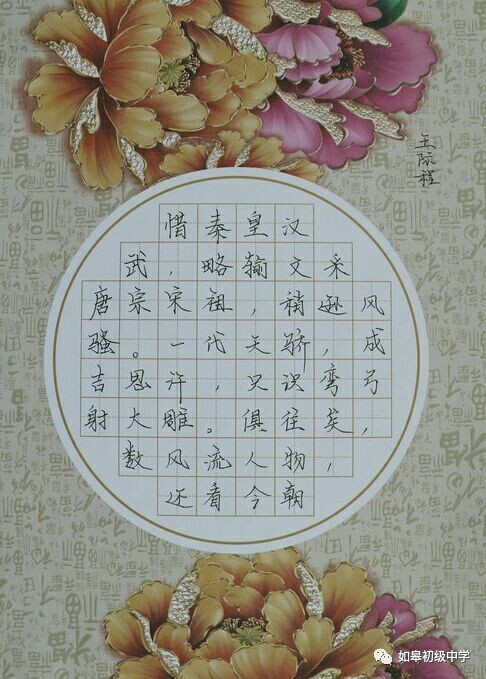 惜秦皇汉
武，略输文采
唐宗宋祖，稍逊风
骚。一代天骄，成
吉思汗，只识弯弓
射大雕。俱往矣，
数风流人物，
还看今朝
王际程
如皋初级中学